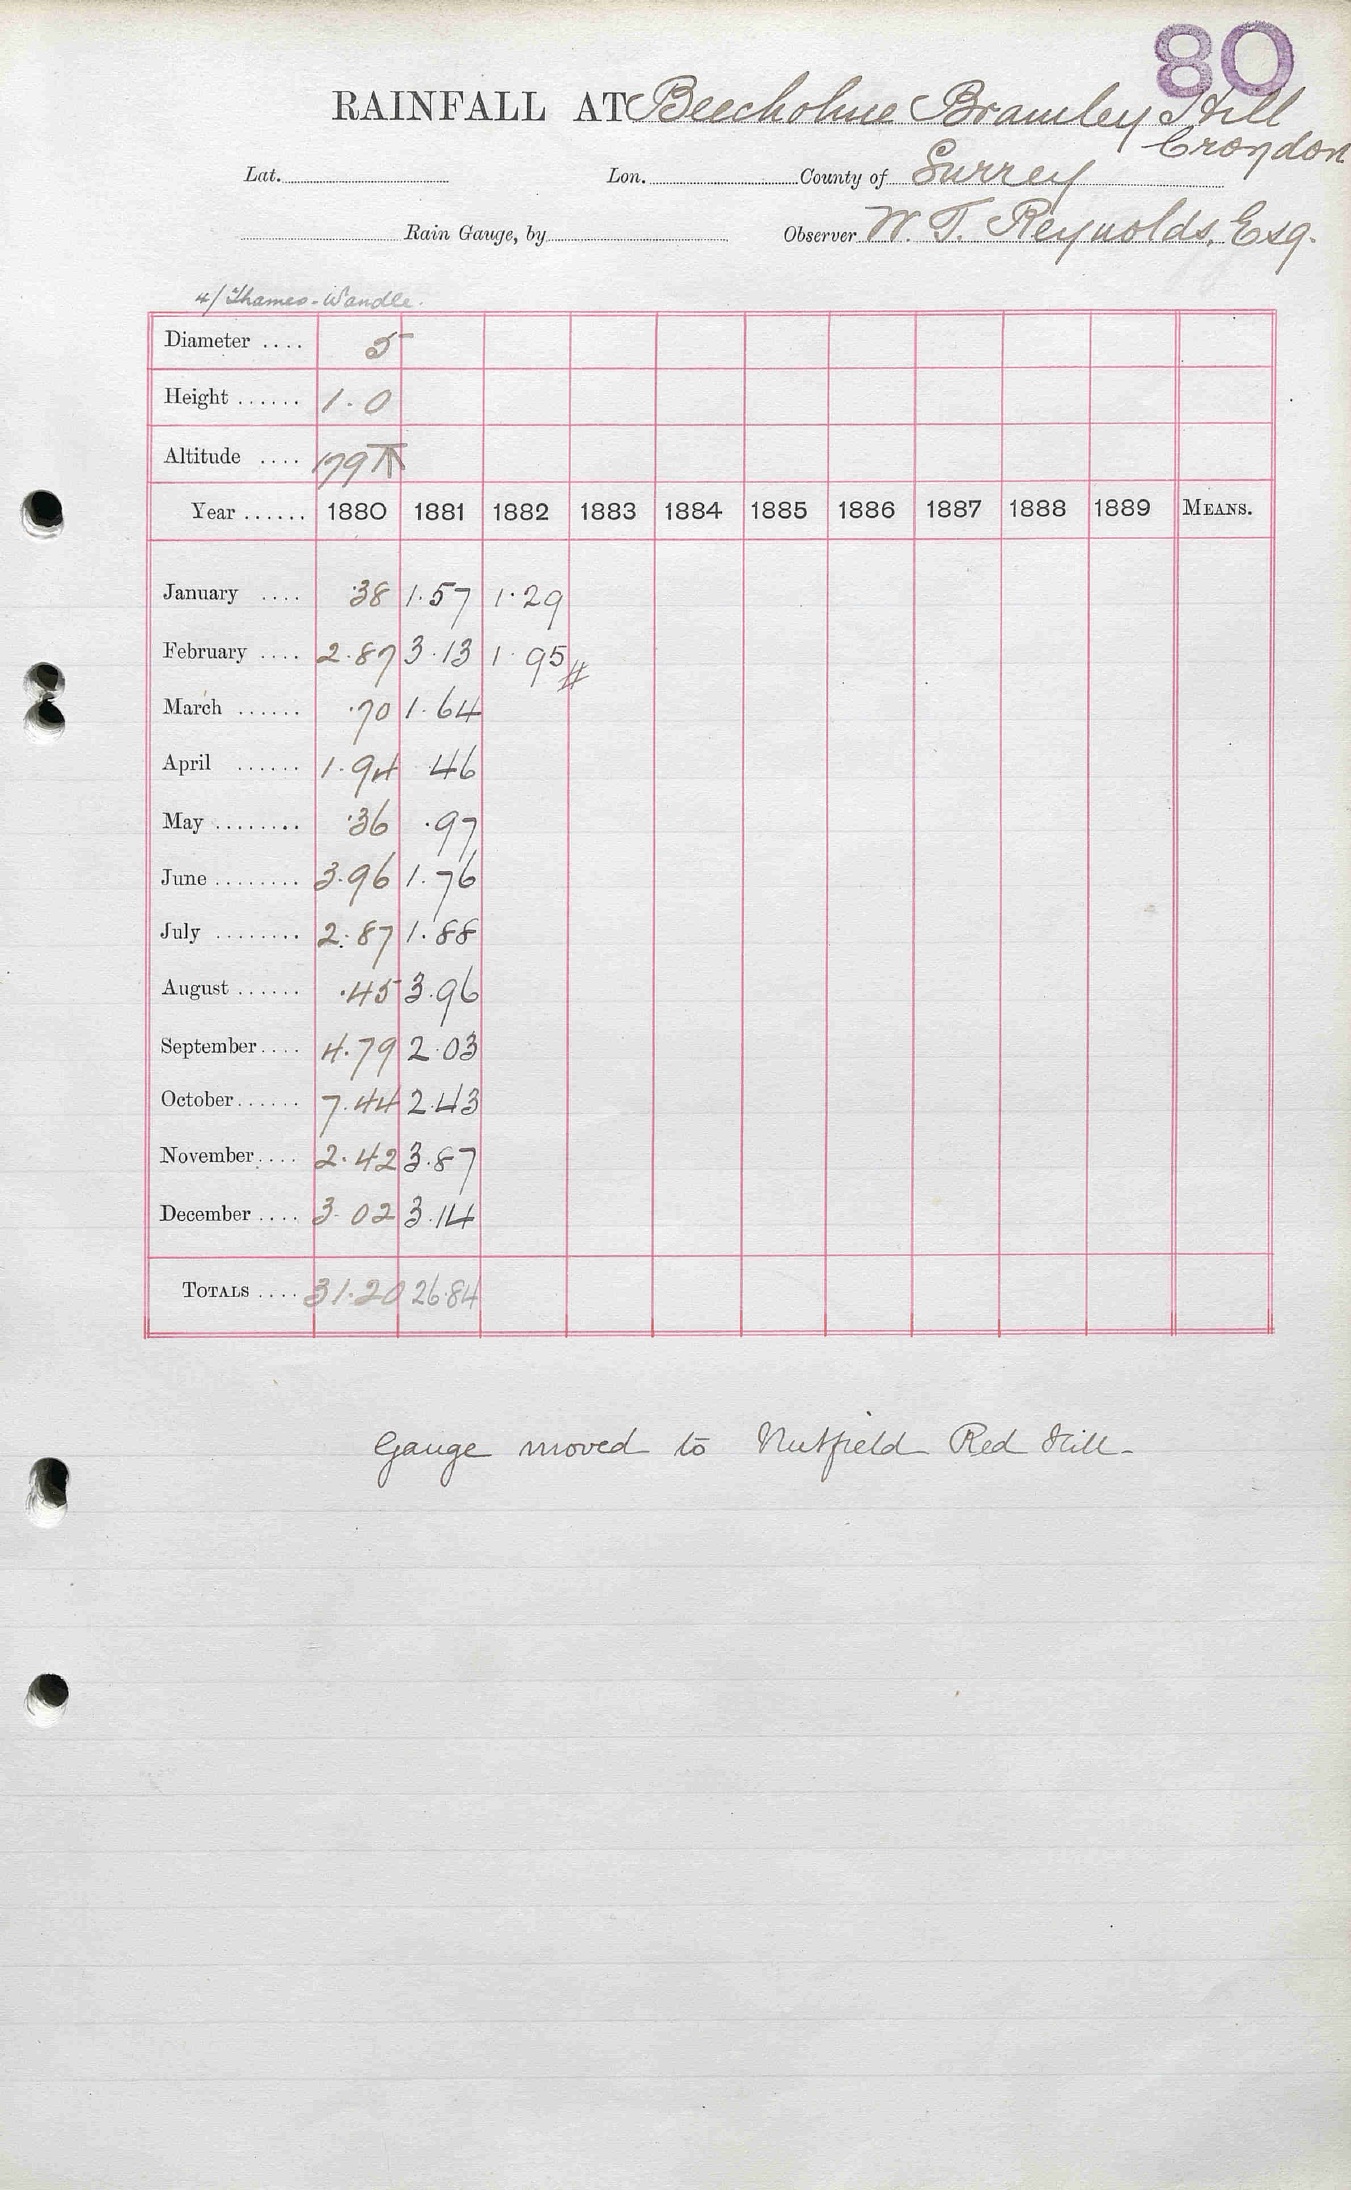 80
RAINFALL AT Beecholme Bramley Hill
Croydon
Lat. Lon. County of Surrey
Rain Gauge, by Observer W. T. Reynolds, Esq.
4/ Thames-Wandle.
Diameter .... 5
Height ...... 1.0
Altitude .... 179 T
Year ...... 1880 1881 1882 1883 1884 1885 1886 1887 1888 1889 MEANS.
January .... .38 1.57 1.29
February .... 2.87 3.13 1.95
March ...... .70 1.64
April ...... 1.94 .46
May ........ .36 .97
June ........ 3.96 1.76
July ........ 2.87 1.88
August ...... .45 3.96
September .... 4.79 2.03
October ...... 7.44 2.43
November .... 2.42 3.87
December .... 3.02 3.14
TOTALS .... 31.20 26.84
Gauge moved to Nutfield Red Hill